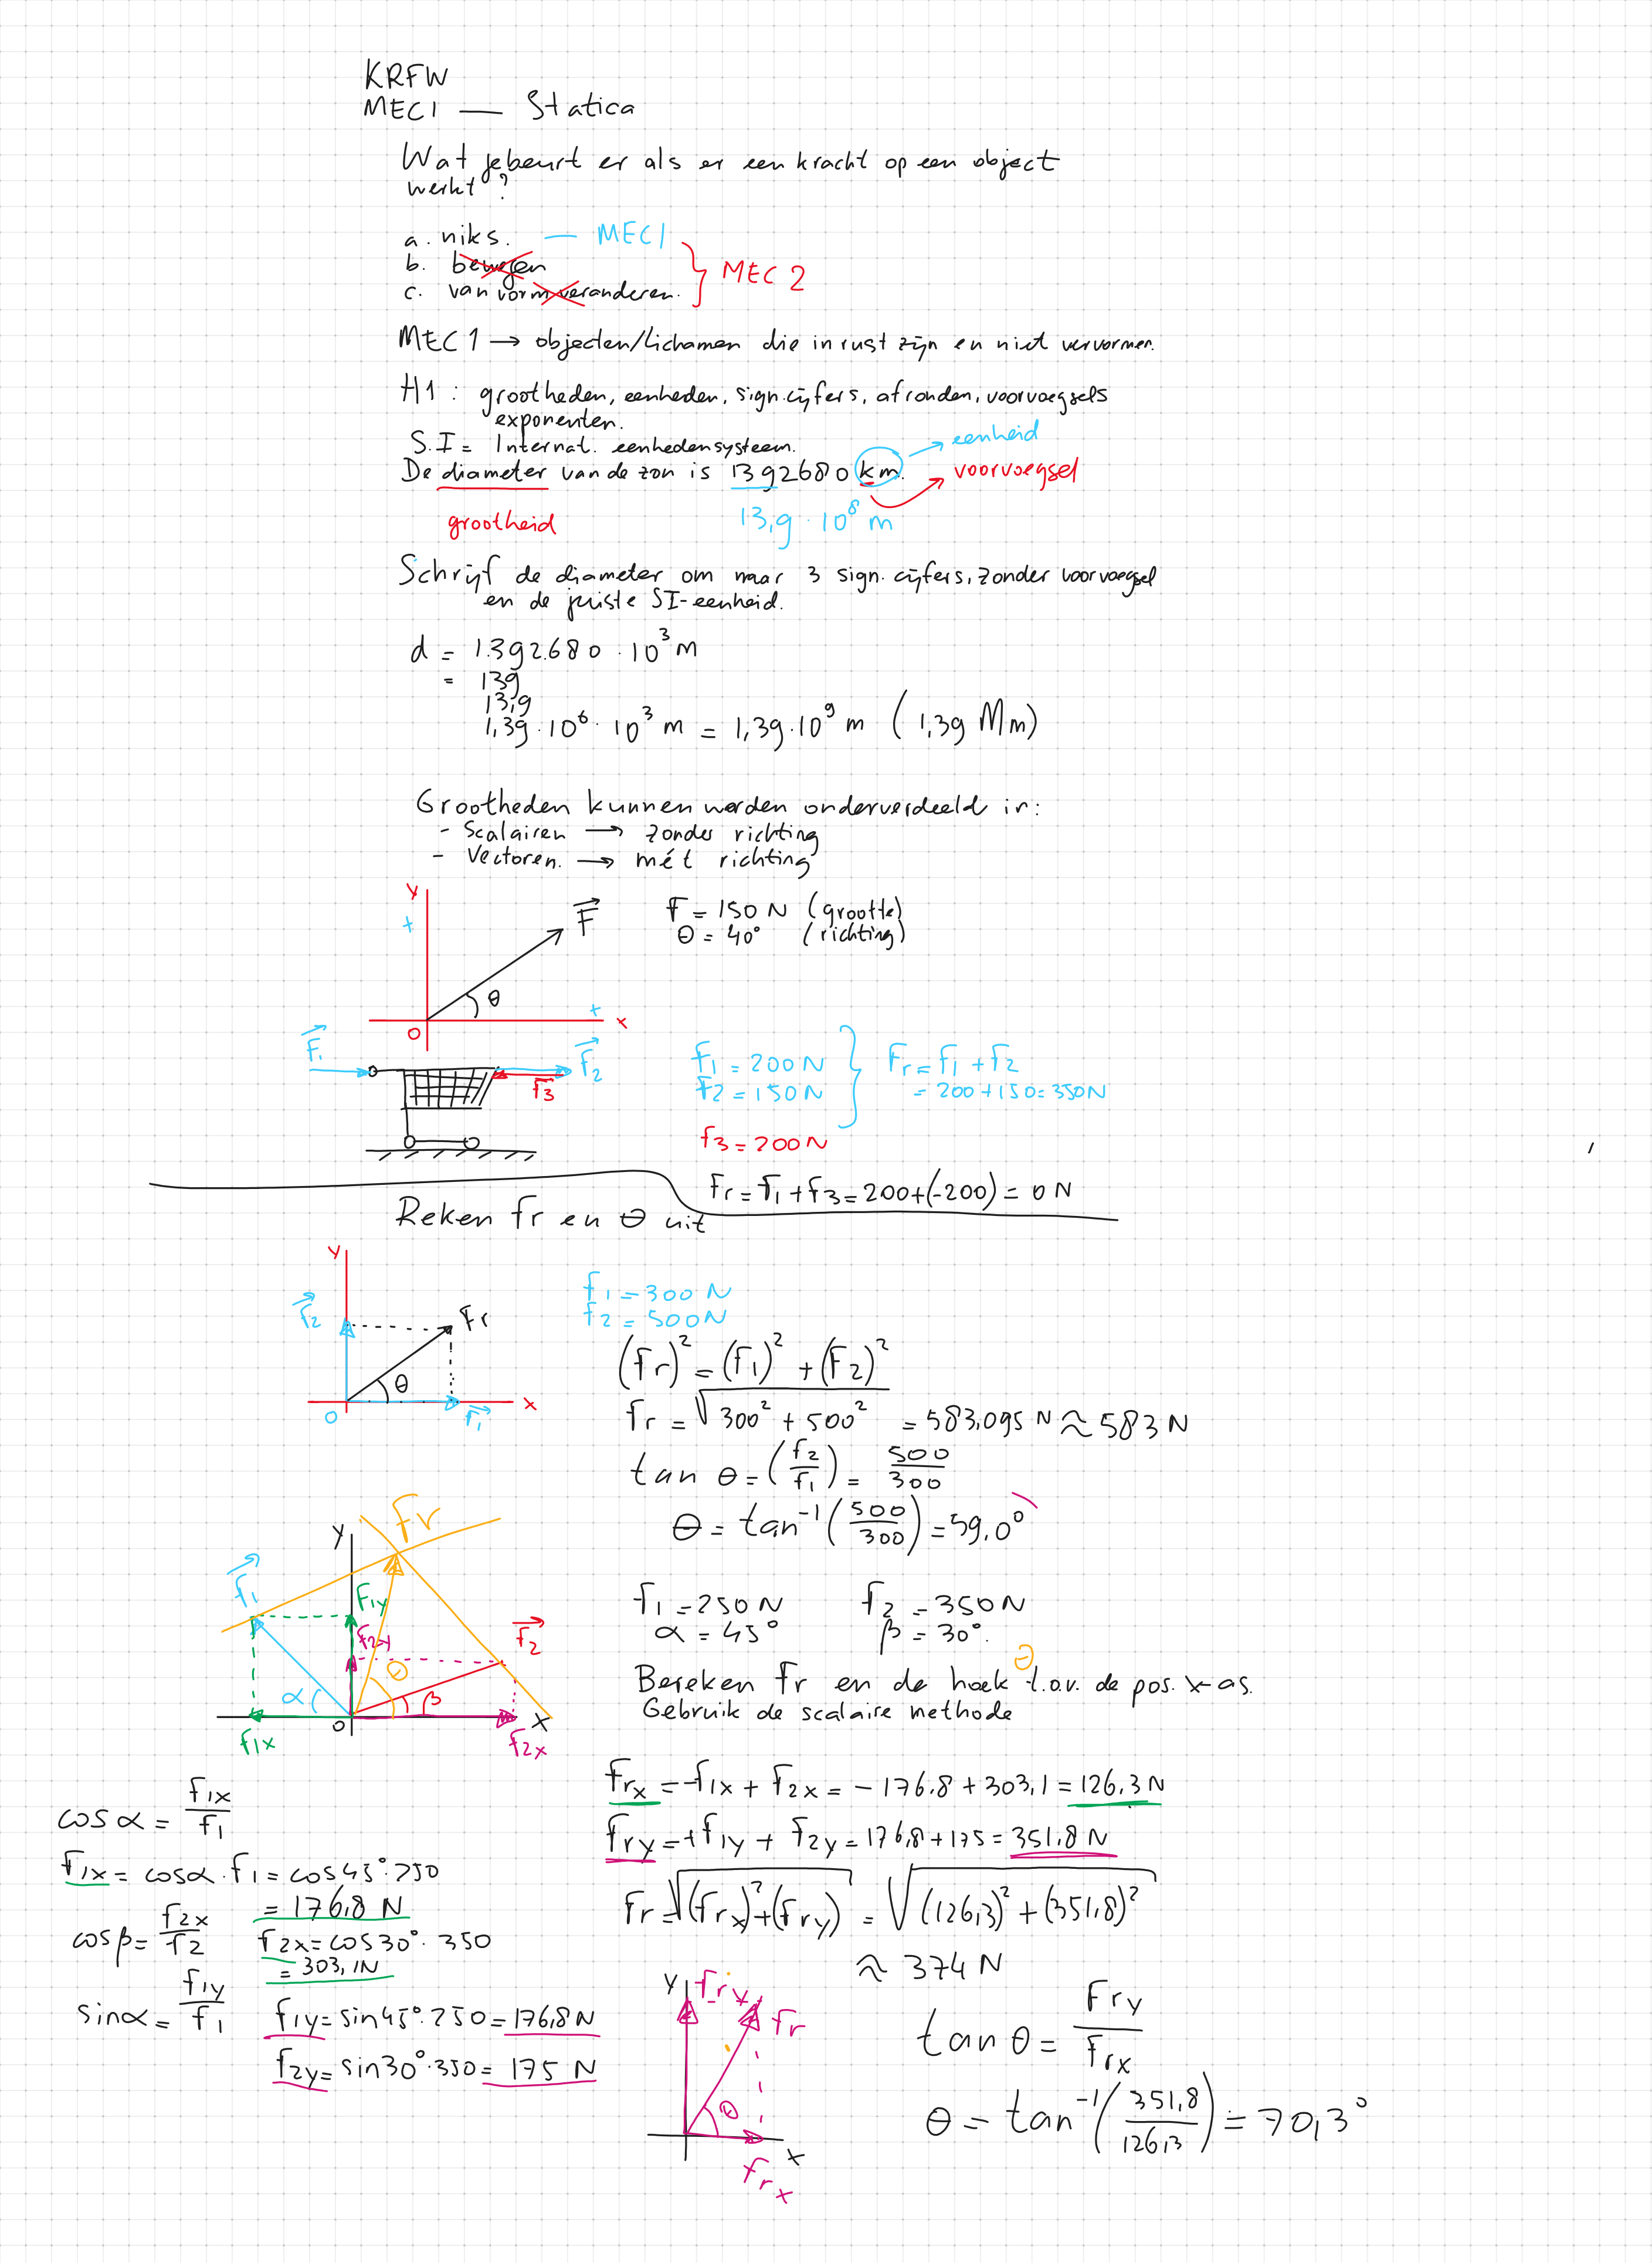 KRFW
MEC1 — Statica
Wat gebeurt er als er een kracht op een object
werkt?
a. niks. — MEC1
b. bewegen
c. van vorm veranderen. } MEC 2
MEC 1 → objecten/lichamen die in rust zijn en niet vervormen.
H1 : grootheden, eenheden, sign. cijfers, afronden, voorvoegsels
exponenten.
S.I = Internat. eenhedensysteem.
→ eenheid
De diameter van de zon is 1392680 km.
→ voorvoegsel
grootheid
13,9 · 10⁸ m
Schrijf de diameter om naar 3 sign. cijfers, zonder voorvoegsel
en de juiste SI-eenheid.
d = 1.392.680 · 10³ m
= 139
13,9
1,39 · 10⁶ · 10³ m = 1,39 · 10⁹ m (1,39 Mm)
Grootheden kunnen worden onderverdeeld in:
- Scalairen → zonder richting
- Vectoren. → mét richting
y
+
F
F = 150 N (grootte)
θ = 40° (richting)
θ
+
x
O
F₁
F₂
F₃
F₁ = 200 N
F₂ = 150 N
Fr = F₁ + F₂
= 200 + 150 = 350 N
F₃ = 200 N
Fr = F₁ + F₃ = 200 + (-200) = 0 N
Reken Fr en θ uit
y
F₂
Fr
θ
O
F₁
x
F₁ = 300 N
F₂ = 500 N
(Fr)² = (F₁)² + (F₂)²
Fr = √300² + 500² = 583,095 N ≈ 583 N
tan θ = (F₂/F₁) = 500/300
θ = tan⁻¹(500/300) = 59,0°
y
Fr
F₁
F1y
F2y
F₂
θ
α
β
O
x
F1x
F2x
F₁ = 250 N F₂ = 350 N
α = 45° β = 30°.
θ
Bereken Fr en de hoek t.o.v. de pos. x-as.
Gebruik de scalaire methode
Frx = -F1x + F2x = -176.8 + 303,1 = 126,3 N
Fry = +F1y + F2y = 176,8 + 175 = 351,8 N
Fr = √(Frx)² + (Fry) = √(126,3)² + (351,8)²
≈ 374 N
cos α = F1x/F1
F1x = cos α · F1 = cos 45° · 250
= 176,8 N
cos β = F2x/F2
F2x = cos 30° · 350
= 303,1 N
sin α = F1y/F1
F1y = sin 45° · 250 = 176,8 N
F2y = sin 30° · 350 = 175 N
y
Fry
Fr
θ
x
Frx
tan θ = Fry/Frx
θ = tan⁻¹(351,8/126,3) = 70,3°